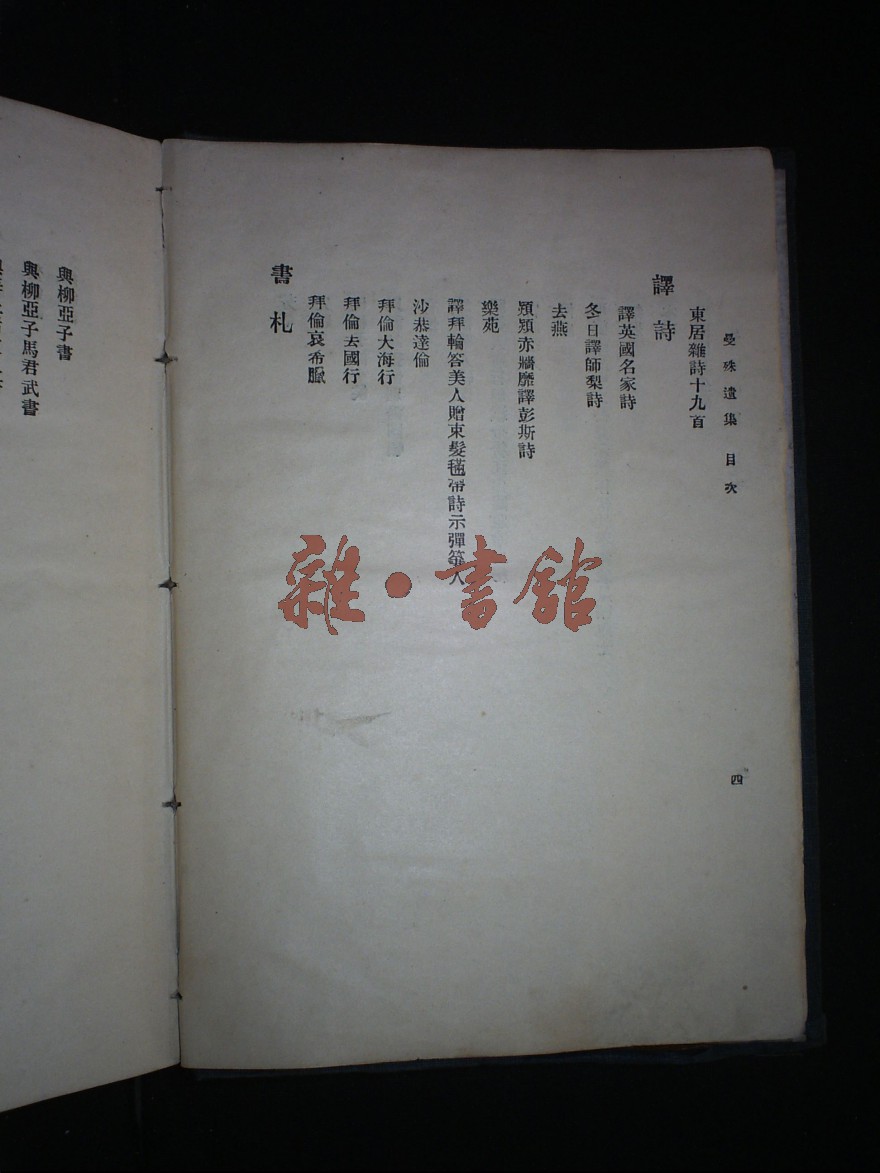 曼殊遺集 目次
東居雜詩十九首
譯詩
譯英國名家詩
冬日譯師梨詩
去燕
熲熲赤牆靡譯彭斯詩
樂苑
譯拜輪答美人贈束髮𣰽帶詩示彈箏人
沙恭達倫
拜倫大海行
拜倫去國行
拜倫哀希臘
書札
四
與柳亞子書
與柳亞子馬君武書
雜·書館